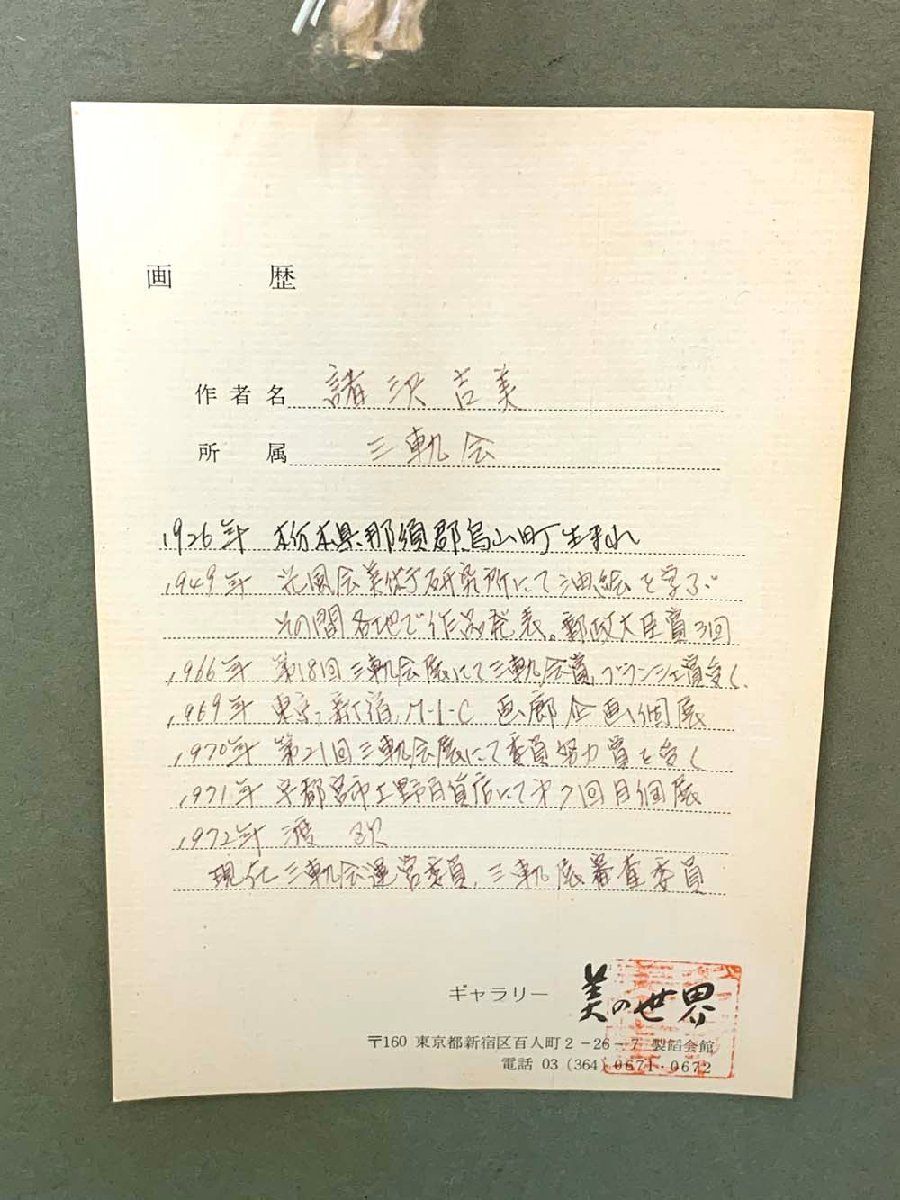 画歴
作者名 諸沢吉美
所属 三軌会
1926年 栃木県那須郡烏山町生まれ
1949年 光風会美術研究所にて油絵を学ぶ
その間各地で作品発表。郵政大臣賞3回
1966年 第18回三軌会展にて三軌会賞、ブランシェ賞受く、
1969年 東京、新宿、M-I-C 画廊企画個展
1970年 第21回三軌会展にて委員努力賞を受く
1971年 宇都宮市上野百貨店にて第7回目個展
1972年 渡欧
現在三軌会運営委員、三軌展審査委員
ギャラリー 美の世界
〒160 東京都新宿区百人町2-26-7 製餡会館
電話 03 (364) 0671・0672